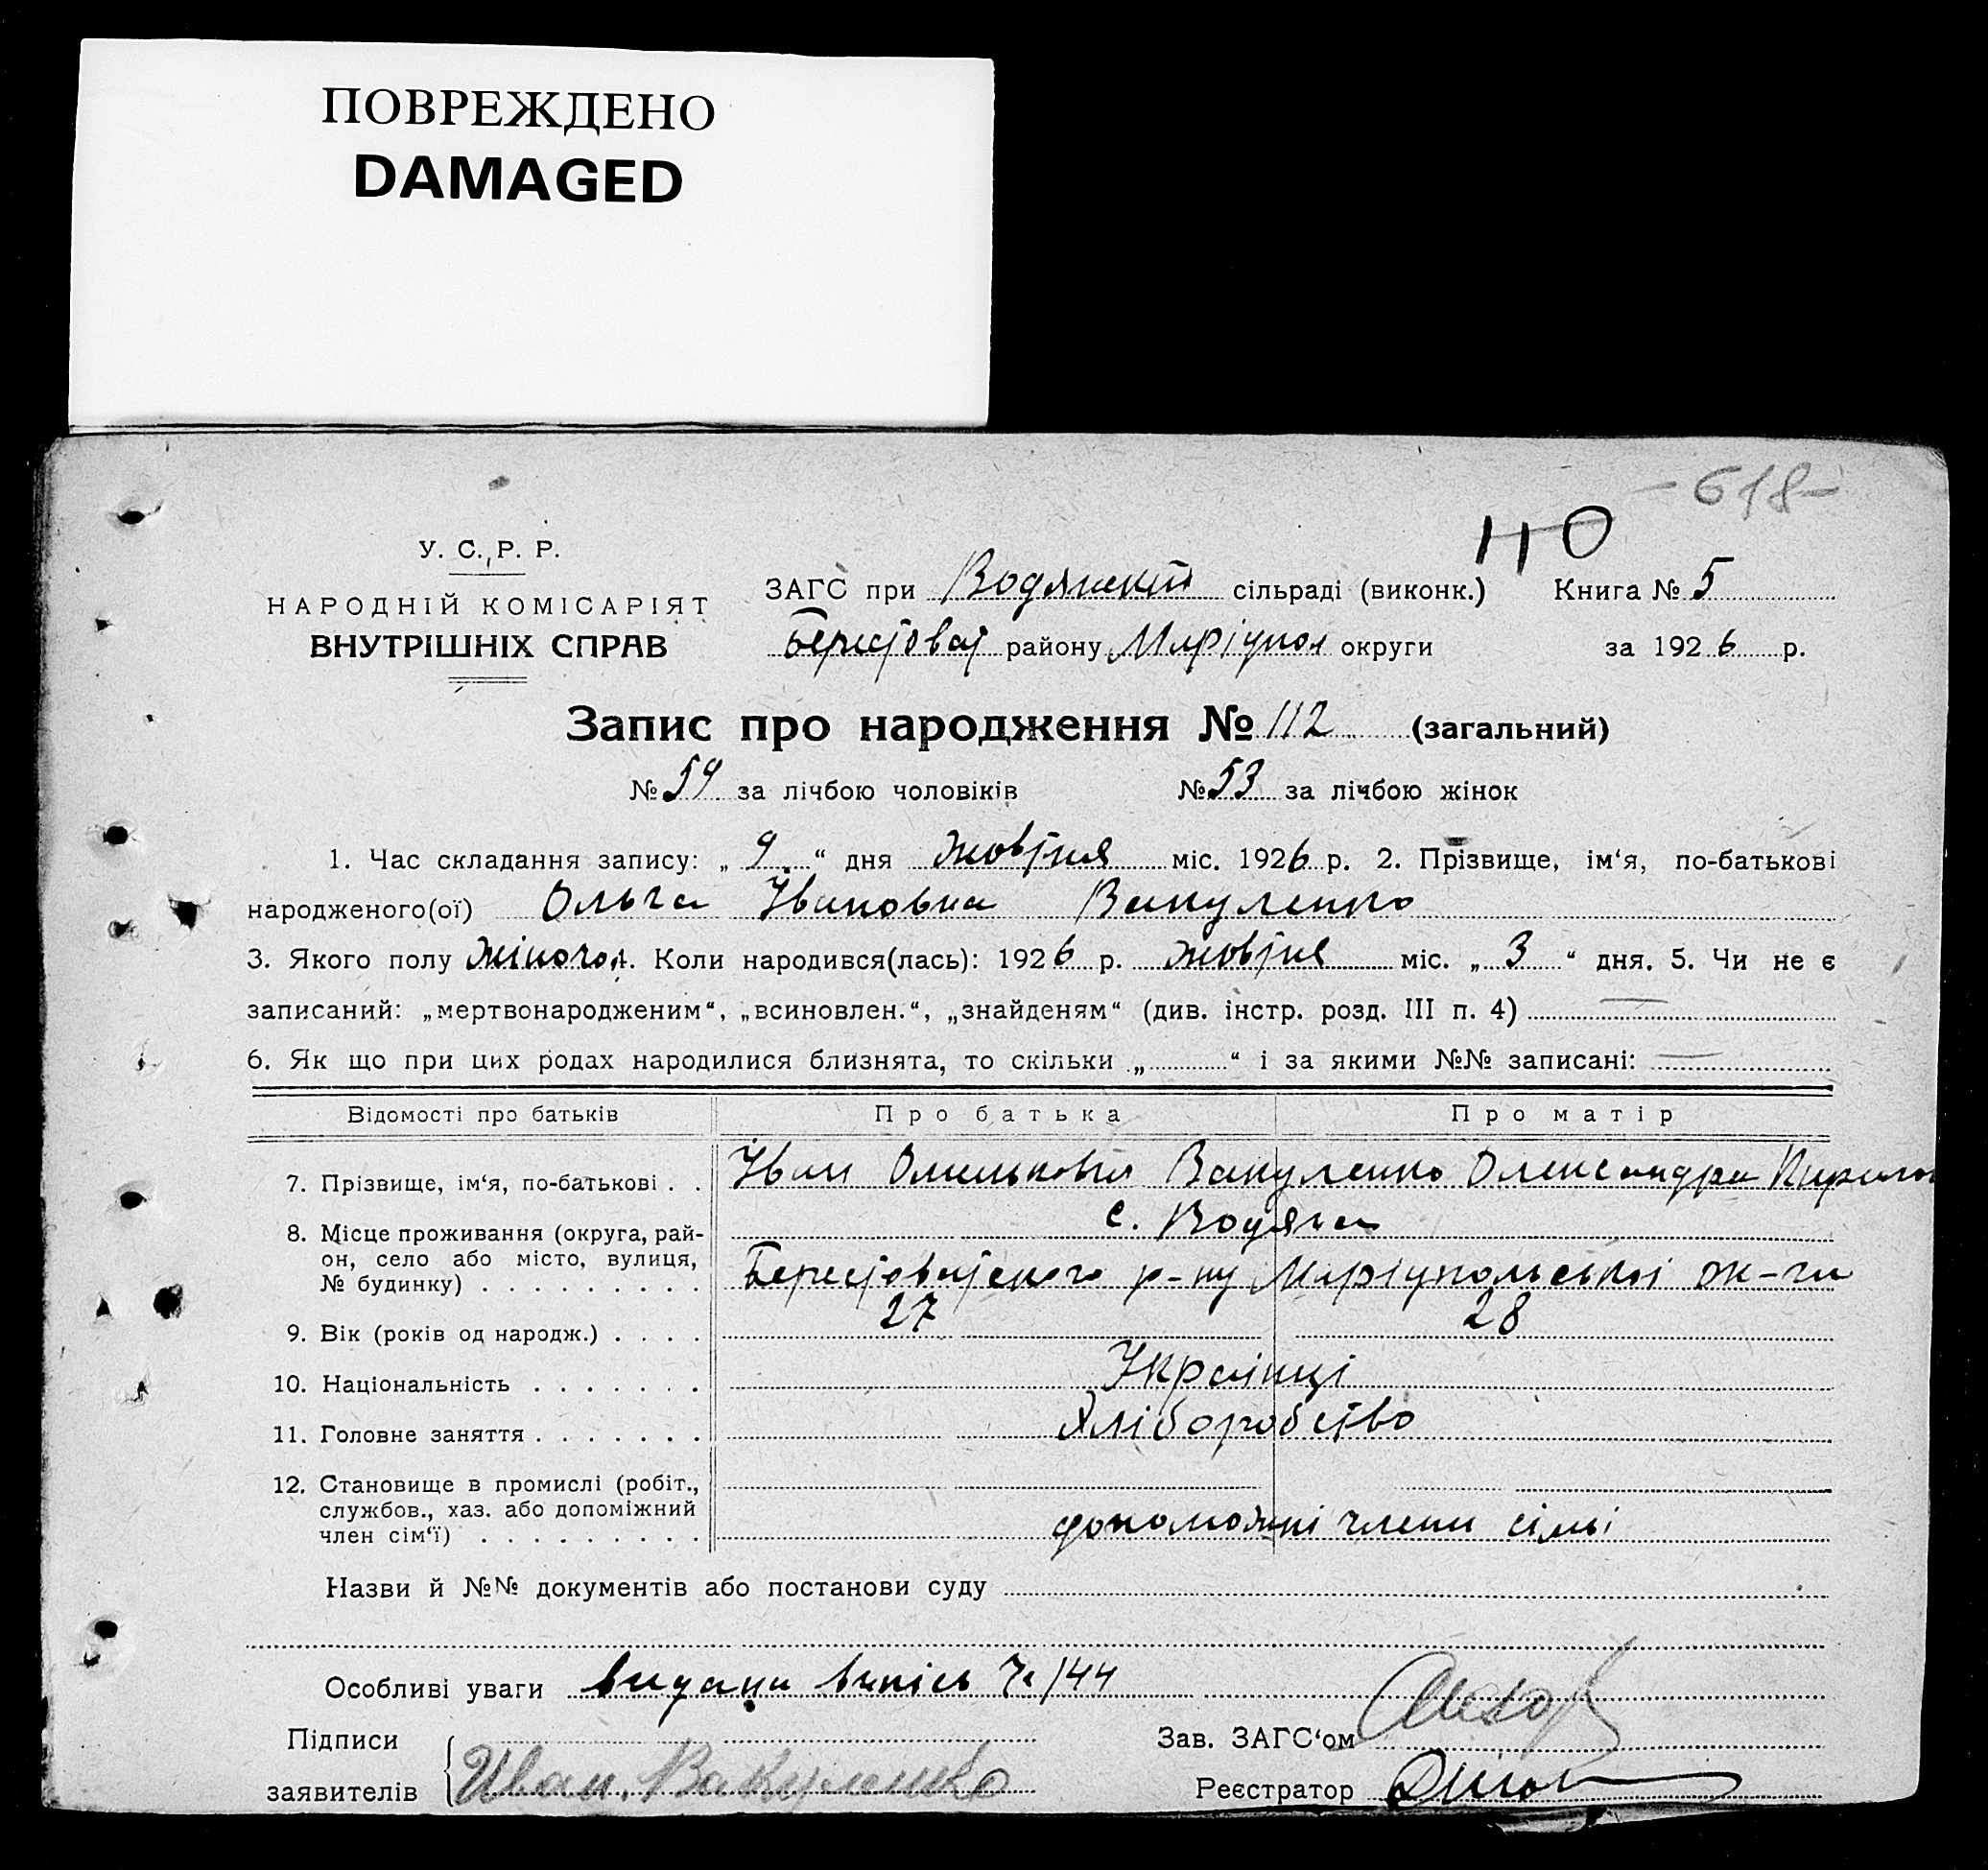 ПОВРЕЖДЕНО
DAMAGED
- 618 -
110
У. С. Р. Р.
НАРОДНІЙ КОМІСАРІЯТ
ВНУТРІШНІХ СПРАВ
ЗАГС при Водянській сільраді (виконк.) Книга № 5
Берестоват району Маріупол округи за 1926 р.
Запис про народження № 112 (загальний)
№ 59 за лічбою чоловіків № 53 за лічбою жінок
1. Час складання запису: „ 9 “ дня жовтня міс. 1926 р. 2. Прізвище, ім‘я, по-батькові
народженого(ої) Ольга Івановна Вакуленко
3. Якого полу жіночої 4. Коли народився(лась): 1926 р. жовтня міс. „ 3 “ дня. 5. Чи не є
записаний: „мертвонародженим“, „всиновлен.“, „знайденям“ (див. інстр. розд. III п. 4) —
6. Як що при цих родах народилися близнята, то скільки „ “ і за якими №№ записані: —
Відомості про батьків Про батька Про матір
7. Прізвище, ім‘я, по-батькові . . Іван Омелькович Вакуленко Олександра Кирилов
8. Місце проживання (округа, рай-
он, село або місто, вулиця,
№ будинку) . . . . . . . . .
с. Водяна
Берестоватського р-ну Маріупольської ок-ги
9. Вік (років од народж.) . . . . 27 28
10. Національність . . . . . . . Українці
11. Головне заняття . . . . . . . Хліборобство
12. Становище в промислі (робіт.,
службов., хаз. або допоміжний
член сім‘ї) . . . . . . . . .
допоможні члени сімьі
Назви й №№ документів або постанови суду
Особливі уваги видана випісь № 144
Підписи
заявителів Иван Вакуленко
Зав. ЗАГС‘ом
Реєстратор